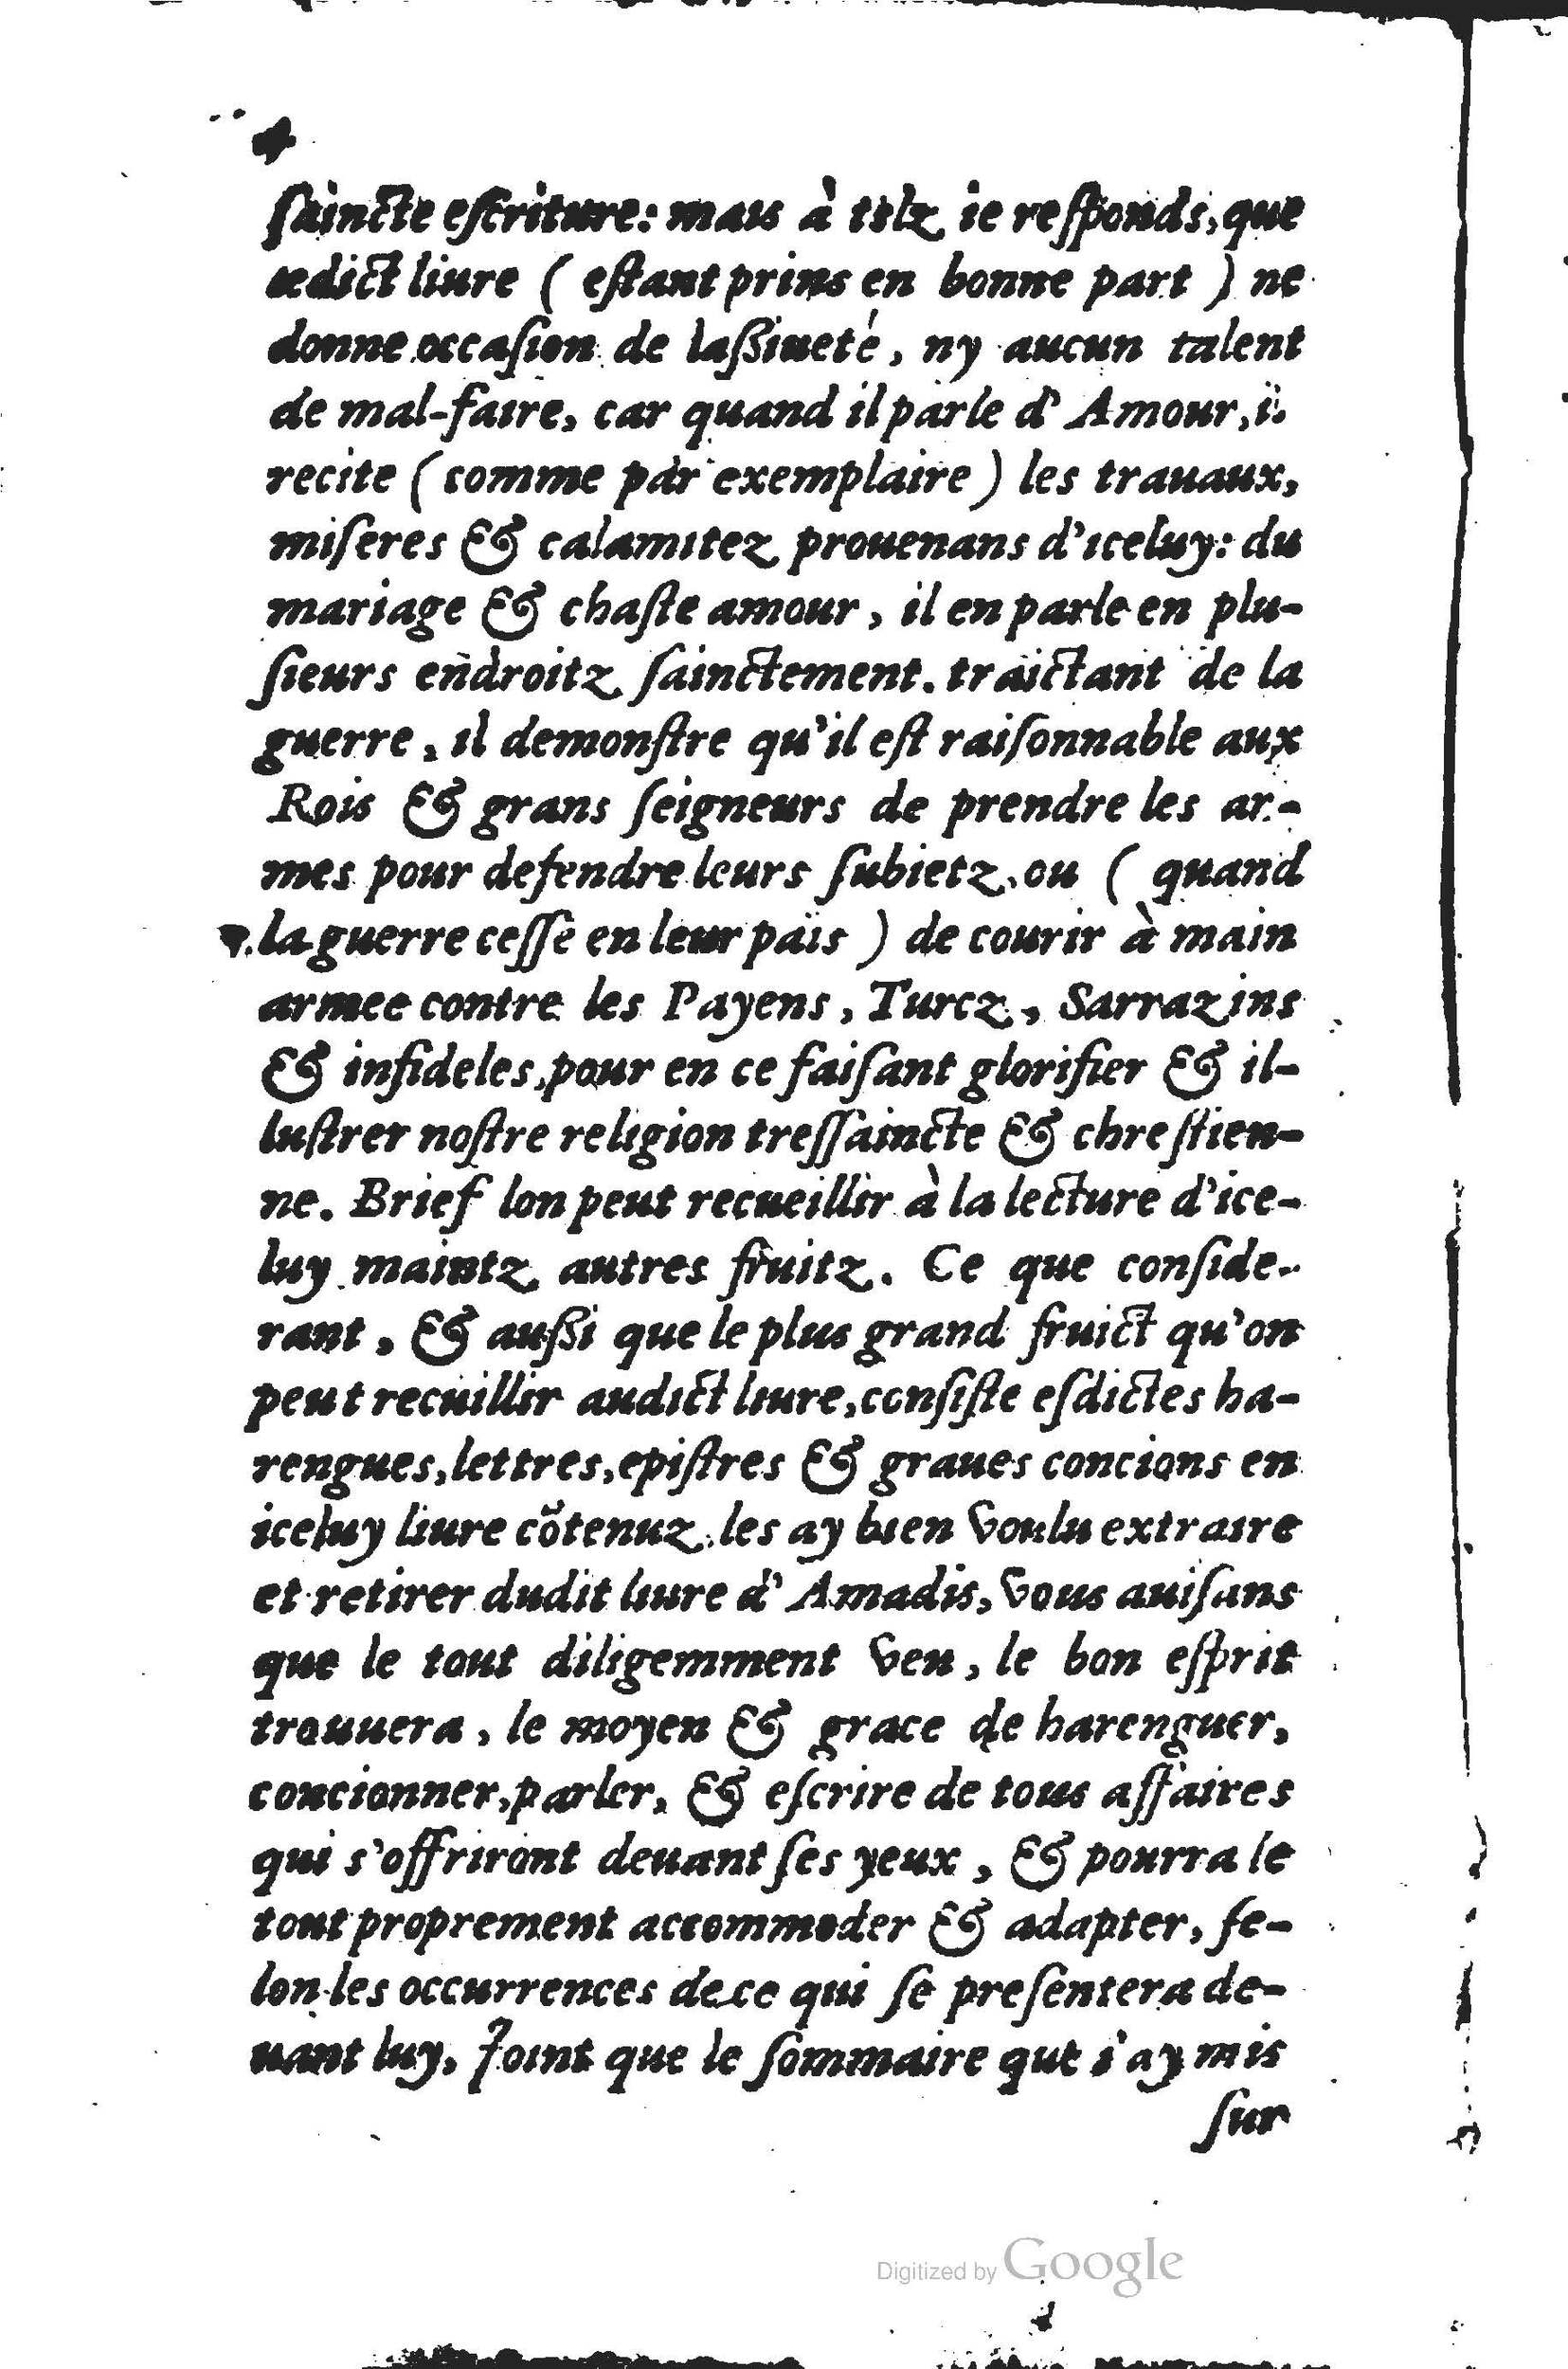 4
ſaincte eſcriture: mais à telz ie reſponds, que
cedict liure ( eſtant prins en bonne part ) ne
donne occaſion de laßiueté, ny aucun talent
de mal-faire, car quand il parle d'Amour, il
recite ( comme par exemplaire ) les trauaux,
miſeres & calamitez prouenans d'iceluy: du
mariage & chaſte amour, il en parle en plu-
ſieurs endroitz ſainctement. traictant de la
guerre, il demonſtre qu'il eſt raiſonnable aux
Rois & grans ſeigneurs de prendre les ar-
mes pour defendre leurs ſubietz, ou ( quand
la guerre ceſſe en leur païs ) de courir à main
armee contre les Payens, Turcz, Sarrazins
& infideles, pour en ce faiſant glorifier & il-
luſtrer noſtre religion treſſaincte & chreſtien-
ne. Brief lon peut recueillir à la lecture d'ice-
luy maintz autres fruitz. Ce que conſide-
rant, & außi que le plus grand fruict qu'on
peut recuillir audict liure, conſiſte eſdictes ha-
rengues, lettres, epiſtres & graues concions en
iceluy liure cõtenuz, les ay bien voulu extraire
et retirer dudit liure d'Amadis, vous auiſans
que le tout diligemment veu, le bon eſprit
trouuera, le moyen & grace de harenguer,
concionner, parler, & eſcrire de tous affaires
qui s'offriront deuant ſes yeux, & pourra le
tout proprement accommoder & adapter, ſe-
lon les occurrences de ce qui ſe preſentera de-
uant luy. Joint que le ſommaire que i'ay mis
ſur
Digitized by Google